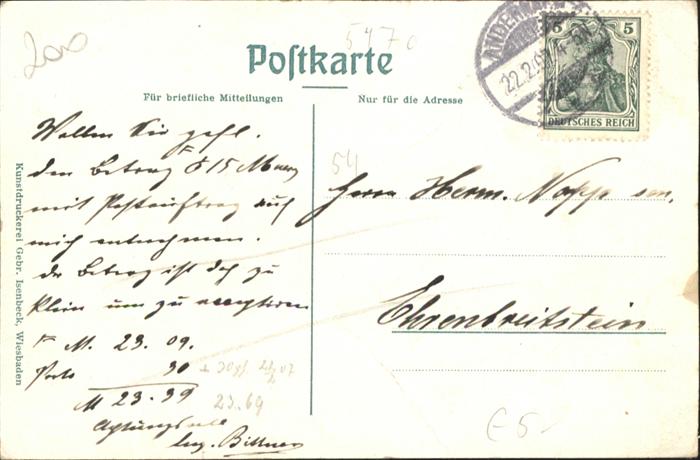 200
5470
Postkarte
ANDERNACH
22.2.
5 5
DEUTSCHES REICH
Für briefliche Mitteilungen
Nur für die Adresse
Wollen Sie gefl.
den Betrag
mit Postauftrag auf
mich entnehmen.
der Betrag ist doch zu
klein um zu acceptiren
M. 23.09.
Porto 30
M 23.39
23.69
Achtungsvoll
54
Herrn Herm. Nopp sen.
Ehrenbreitstein
€ 5
Kunstdruckerei Gebr. Isenbeck, Wiesbaden